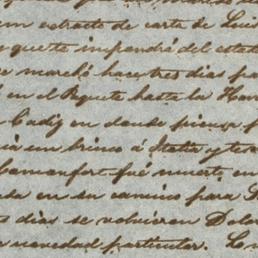 un extracto de carta de Luis
que te impondrá del estado
marchó hace tres dias pa
en el Paquete hasta la Hav
Cadiz en donde piensa p
un brinco á Italia y te
Comonfort fué muerto en
en su camino para
dias se volvieron Dolo
novedad particular.